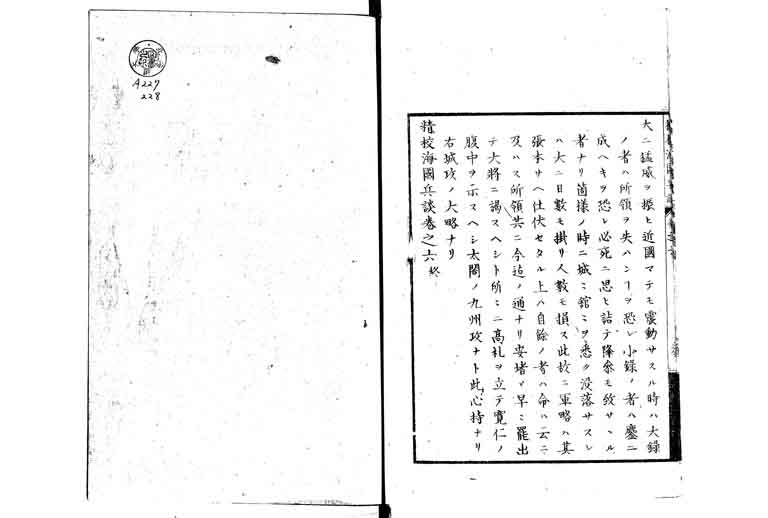 大ニ猛威ヲ振ヒ近國マテモ震動サスル時ハ大録
ノ者ハ所領ヲ失ハンヿヲ恐レ小録ノ者ハ鏖ニ
成ヘキヲ恐レ必死ニ思ヒ詰テ降参モ致サヽル
者ナリ箇樣ノ時ニ城ミ舘ミヲ悉ク没落サスレ
ハ大ニ日數モ掛リ人數モ損ス此故ニ軍略ハ其
張本サヘ仕伏セタル上ハ自餘ノ者ハ命ハ云ニ
及ハス所領共ニ今迠ノ通ナリ安堵〆早ミ罷出
テ大将ニ謁スヘシト所ミニ高札ヲ立テ寛仁ノ
腹中ヲ示スヘシ太閤ノ九州攻ナト此心持ナリ
右城攻ノ大略ナリ
精校海國兵談巻之六終
A227
228